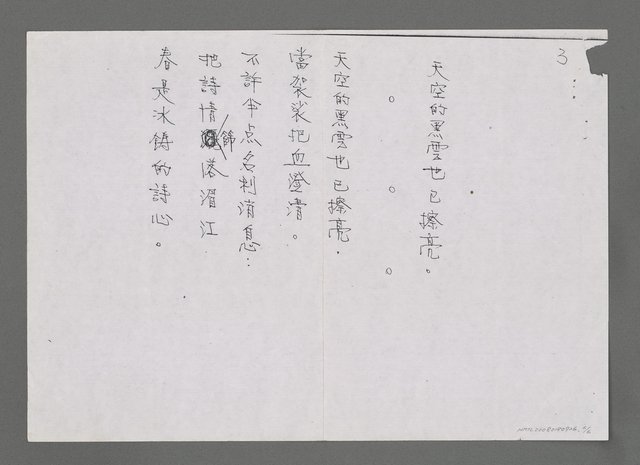 3
天空的黑雲也已擦亮。
。。。
天空的黑雲也已擦亮.
當袈裟把血澄清。
不許半点名利消息:
把詩情飾落湄江
春是冰鑄的詩心。